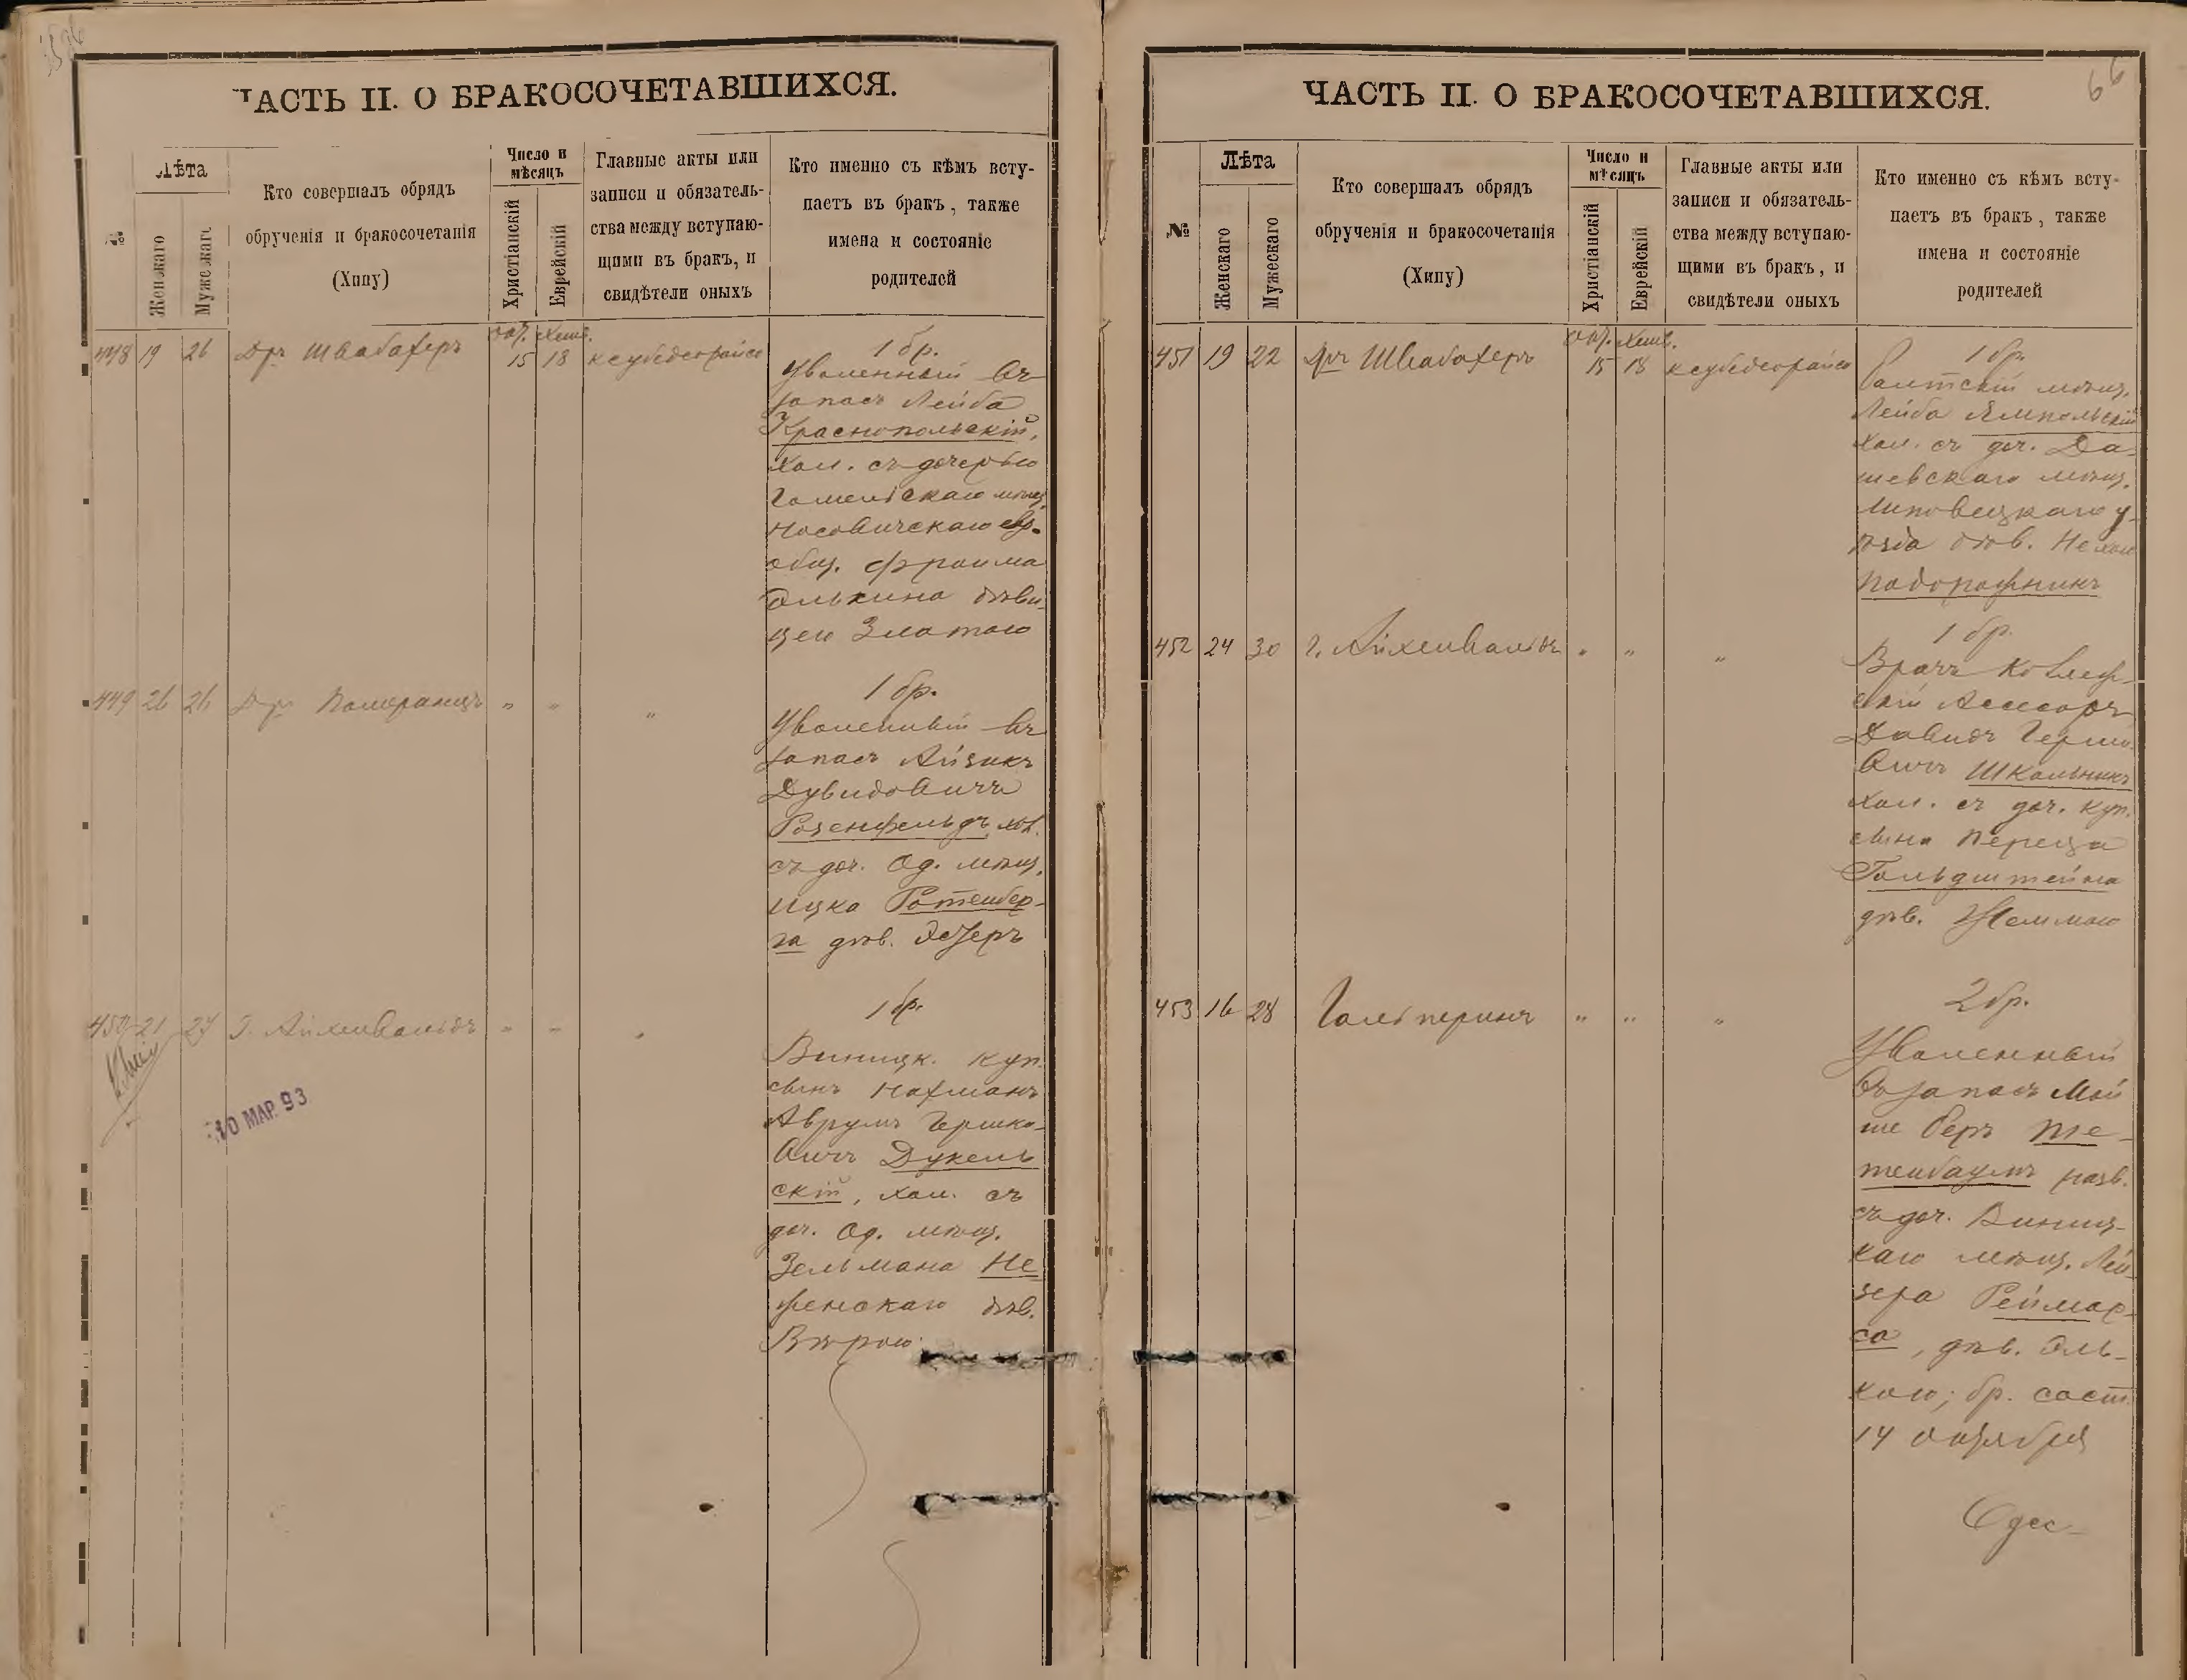 ЧАСТЬ II. О БРАКОСОЧЕТАВШИХСЯ.
№
Лѣта
Женскаго
Мужескаго
Кто совершалъ обрядъ
обрученія и бракосочетанія
(Хипу)
Число и
мѣсяцъ
Христіанскій
Еврейскій
Главные акты или
записи и обязатель-
ства между вступаю-
щими въ бракъ, и
свидѣтели оныхъ
Кто именно съ кѣмъ всту-
паетъ въ бракъ, также
имена и состояніе
родителей
окт. хешв.
448 19 26 Д-ръ Швабахеръ 15 18 ксубедеорайсо
1 бр.
Уволенный въ
запасъ Лейба
Краснопольскій,
хол. съ дочерью
Гомельскаго мѣщ.
Носовичскаго евр.
общ. Фроима
Элькина дѣви-
цею Златою
449 26 26 Д-ръ Померанцъ " " "
1 бр.
Уволенный въ
запасъ Айзикъ
Дувидовичъ
Розенфельдъ, хол.
съ доч. Од. мѣщ.
Ицка Ротенбер-
га дѣв. Эстеръ
450 21 27 Г. Айхенвальдъ " " "
10 МАР. 93
1 бр.
Виницк. куп.
сынъ Нахманъ
Аврумъ Гершко-
вичъ Дукель
скій, хол. съ
доч. Од. мѣщ.
Зельмана Не
женскаго дѣв.
Вѣрою.
ЧАСТЬ II. О БРАКОСОЧЕТАВШИХСЯ.
66
№
Лѣта
Женскаго
Мужескаго
Кто совершалъ обрядъ
обрученія и бракосочетанія
(Хипу)
Число и
мѣсяцъ
Христіанскій
Еврейскій
Главные акты или
записи и обязатель-
ства между вступаю-
щими въ бракъ, и
свидѣтели оныхъ
Кто именно съ кѣмъ всту-
паетъ въ бракъ, также
имена и состояніе
родителей
окт. хешв.
451 19 22 Д-ръ Швабахеръ 15 18 ксубедеорайсо
1 бр.
Балтскій мѣщ.
Лейба Ямпольскій
хол. съ доч. Да-
шевскаго мѣщ.
Липовецкаго у-
ѣзда дѣв.
452 24 30 Г. Айхенвальдъ " " "
1 бр.
Врачъ Коллеж-
скій Ассесоръ
Давидъ Гершко-
вичъ Школьникъ
хол. съ доч. куп.
сына Переца
Гольдштейна
дѣв.
453 16 28 Гальперинъ " " "
2 бр.
Уволенный
въ запасъ Мой
ше Беръ Те-
тенбаумъ разв.
съ доч. Виниц-
каго мѣщ. Лей-
зера Реймар-
са, дѣв. Оль-
кою; бр. сост.
14 октября
Одес-